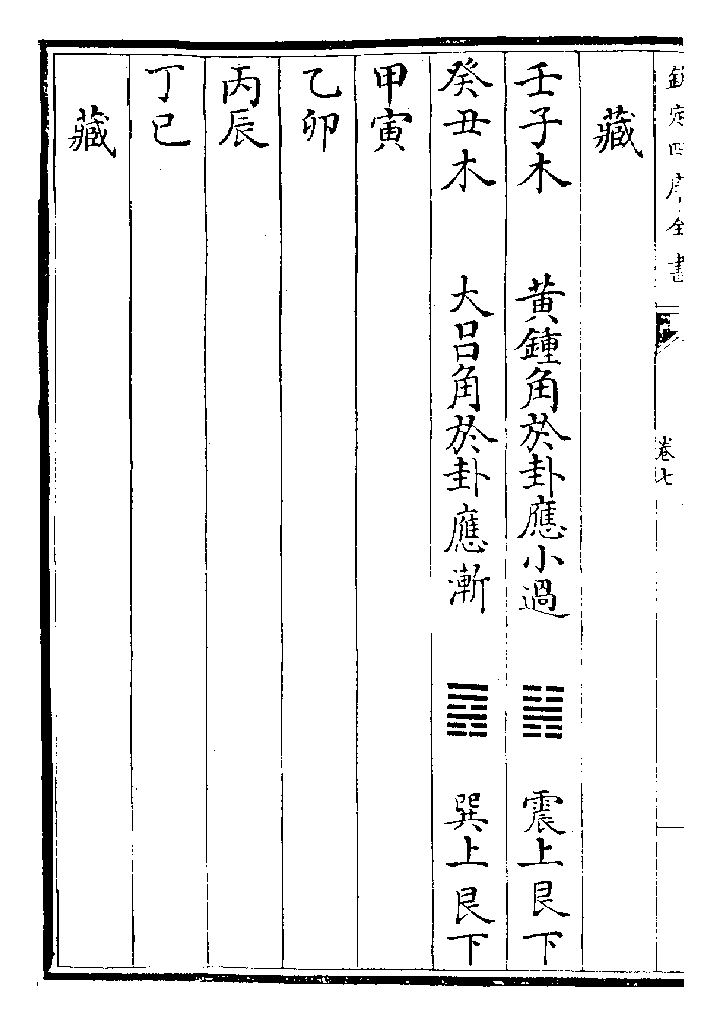 欽定四庫全書
卷七
藏
壬子木 黃鍾角於卦應小過 ䷽ 震上艮下
癸丑木 大呂角於卦應漸 ䷴ 巽上艮下
甲寅
乙卯
丙辰
丁巳
藏